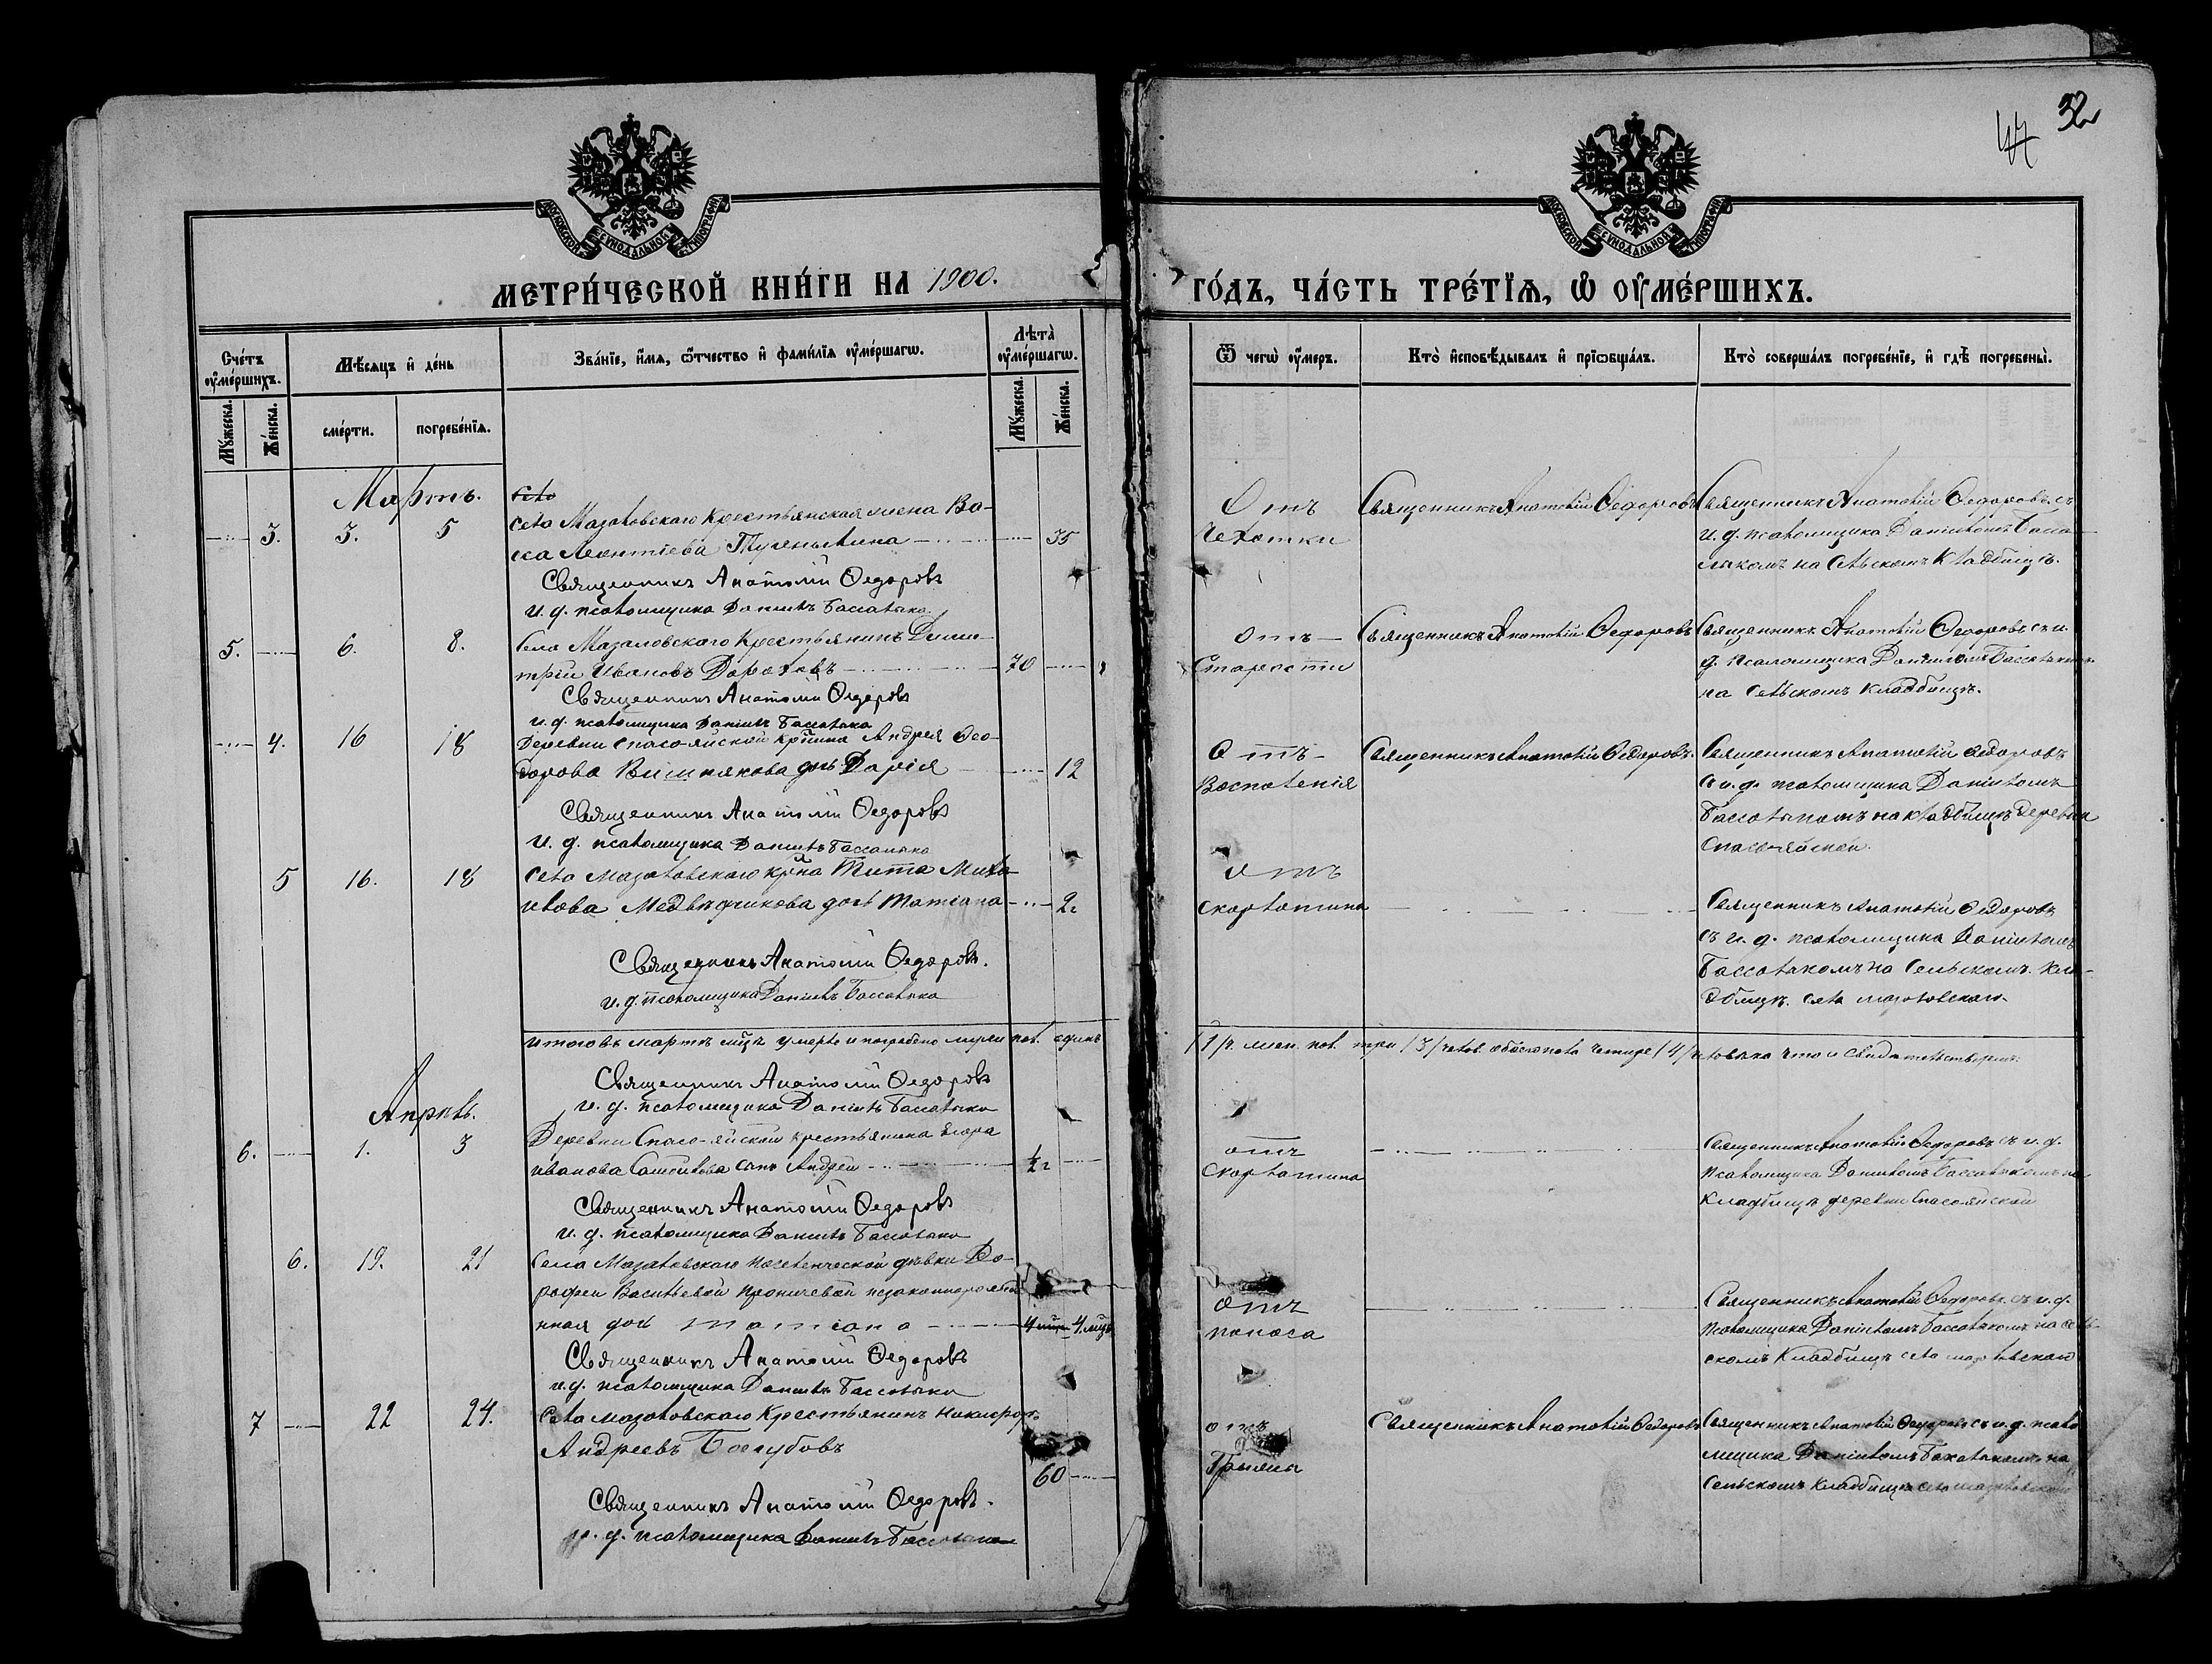 32
47
МОСКОВСКОЙ СѴНОДАЛЬНОЙ ТИПОГРАФІИ
МОСКОВСКОЙ СѴНОДАЛЬНОЙ ТИПОГРАФІИ
МЕТРИ́ЧЕСКОЙ КНИ́ГИ НА 1900.
ГО́ДЪ, ЧА́СТЬ ТРЕ́ТІѦ, Ѡ ОУ҆МЕ́РШИХЪ.
Сче́тъ оу҆ме́ршихъ.
Мѣ́сяцъ и҆ де́нь
Зва́нїе, и҆́мѧ, ѻ҆́тчество и҆ фами́лїѧ оу҆ме́ршагѡ.
Лѣта̀ оу҆ме́ршагѡ.
Мꙋ́жеска.
Же́нска.
сме́рти.
погребе́нїѧ.
Мꙋ́жеска.
Же́нска.
Ѿ чегѡ̀ оу҆́меръ.
Кто̀ и҆сповѣ́дывалъ и҆ прїѡбща́лъ.
Кто̀ соверша́лъ погребе́нїе, и҆ гдѣ̀ погребены̀.
Мартъ.
Села
3. 3. 5 Села Мазаловскаго Крестьянская жена Ва-
са Леонтіева 35
Священникъ Анатолій Ѳедоровъ
и. д. псаломщика Даніилъ Бассалыка
Отъ
Чахотки
Священникъ Анатолій Ѳедоровъ
Священникъ Анатолій Ѳедоровъ съ
и. д. псаломщика Даніиломъ Басса-
лыкомъ на Сельскомъ Кладбищѣ.
5. 6. 8. Села Мазаловскаго Крестьянинъ Дими-
трій Ивановъ Дороховъ 70
Священникъ Анатолій Ѳедоровъ
и. д. псаломщика Даніилъ Бассалыка
отъ
Старости
Священникъ Анатолій Ѳедоровъ
Священникъ Анатолій Ѳедоровъ съ и.
д. псаломщика Даніиломъ Бассалыкомъ
на Сельскомъ Кладбищѣ.
4. 16 18 Деревни Спасо-яйской кр̃нина Андрея Ѳео-
дорова Вишнякова дочь Дарія 12
Священникъ Анатолій Ѳедоровъ
и. д. псаломщика Даніилъ Бассалыка
Отъ
Воспаленія
Священникъ Анатолій Ѳедоровъ.
Священникъ Анатолій Ѳедоровъ
съ и. д. псаломщика Даніиломъ
Бассалыкомъ на кладбищѣ деревни
Спасояйской.
5 16. 18 Села Мазаловскаго кр̃на Тита Миха-
илова Медвѣдчикова дочь Татіана 2г
Священникъ Анатолій Ѳедоровъ.
и. д. псаломщика Даніилъ Бассалыка
отъ
скарлатина
Священникъ Анатолій Ѳедоровъ
съ и. д. псаломщика Даніиломъ
Бассалыкомъ на Сельскомъ. Кла-
дбищѣ. села мазаловскаго.
Итого въ мартѣ мц̃ѣ умерло и погребено мужеи пол. одинъ
/1/ч. жен. пол. три /3/ челов. обоего пола четыре /4/ человѣка что и свидѣтельствуемъ.
Священникъ Анатолій Ѳедоровъ
и. д. псаломщика Даніилъ Бассалыка
Апрѣль.
6. 1. 3 Деревни Спасо-яйской крестьянина Егора
иванова сынъ Андрей ½г
Священникъ Анатолій Ѳедоровъ
и. д. псаломщика Даніилъ Бассалыка
отъ
Скарлатина
Священникъ Анатолій Ѳедоровъ съ и. д.
псаломщика Даніиломъ Бассалыкомъ на
Кладбищѣ деревни Спасояйской
6. 19. 21 Села Мазаловскаго поселенческой дѣвки До-
рофеи Васильевой незаконнорожден-
ная дочь Татіана 4 мц̃а
Священникъ Анатолій Ѳедоровъ
и. д. псаломщика Даніилъ Бассалыка
отъ
поноса
Священникъ Анатолій Ѳедоровъ. съ и. д.
псаломщика Даніиломъ Бассалыкомъ на сель-
скомъ Кладбищѣ села мазаловскаго
7 22 24. Села мазаловскаго Крестьянинъ Никифоръ
Андреевъ 60
Священникъ Анатолій Ѳедоровъ.
и. д. псаломщика Даніилъ Бассалыка
отъ
Грыжы
Священникъ Анатолій Ѳедоровъ
Священникъ Анатолій Ѳедоровъ съ и. д. псало-
мщика Даніиломъ Бассалыкомъ на
Сельскомъ Кладбищѣ села мазаловскаго